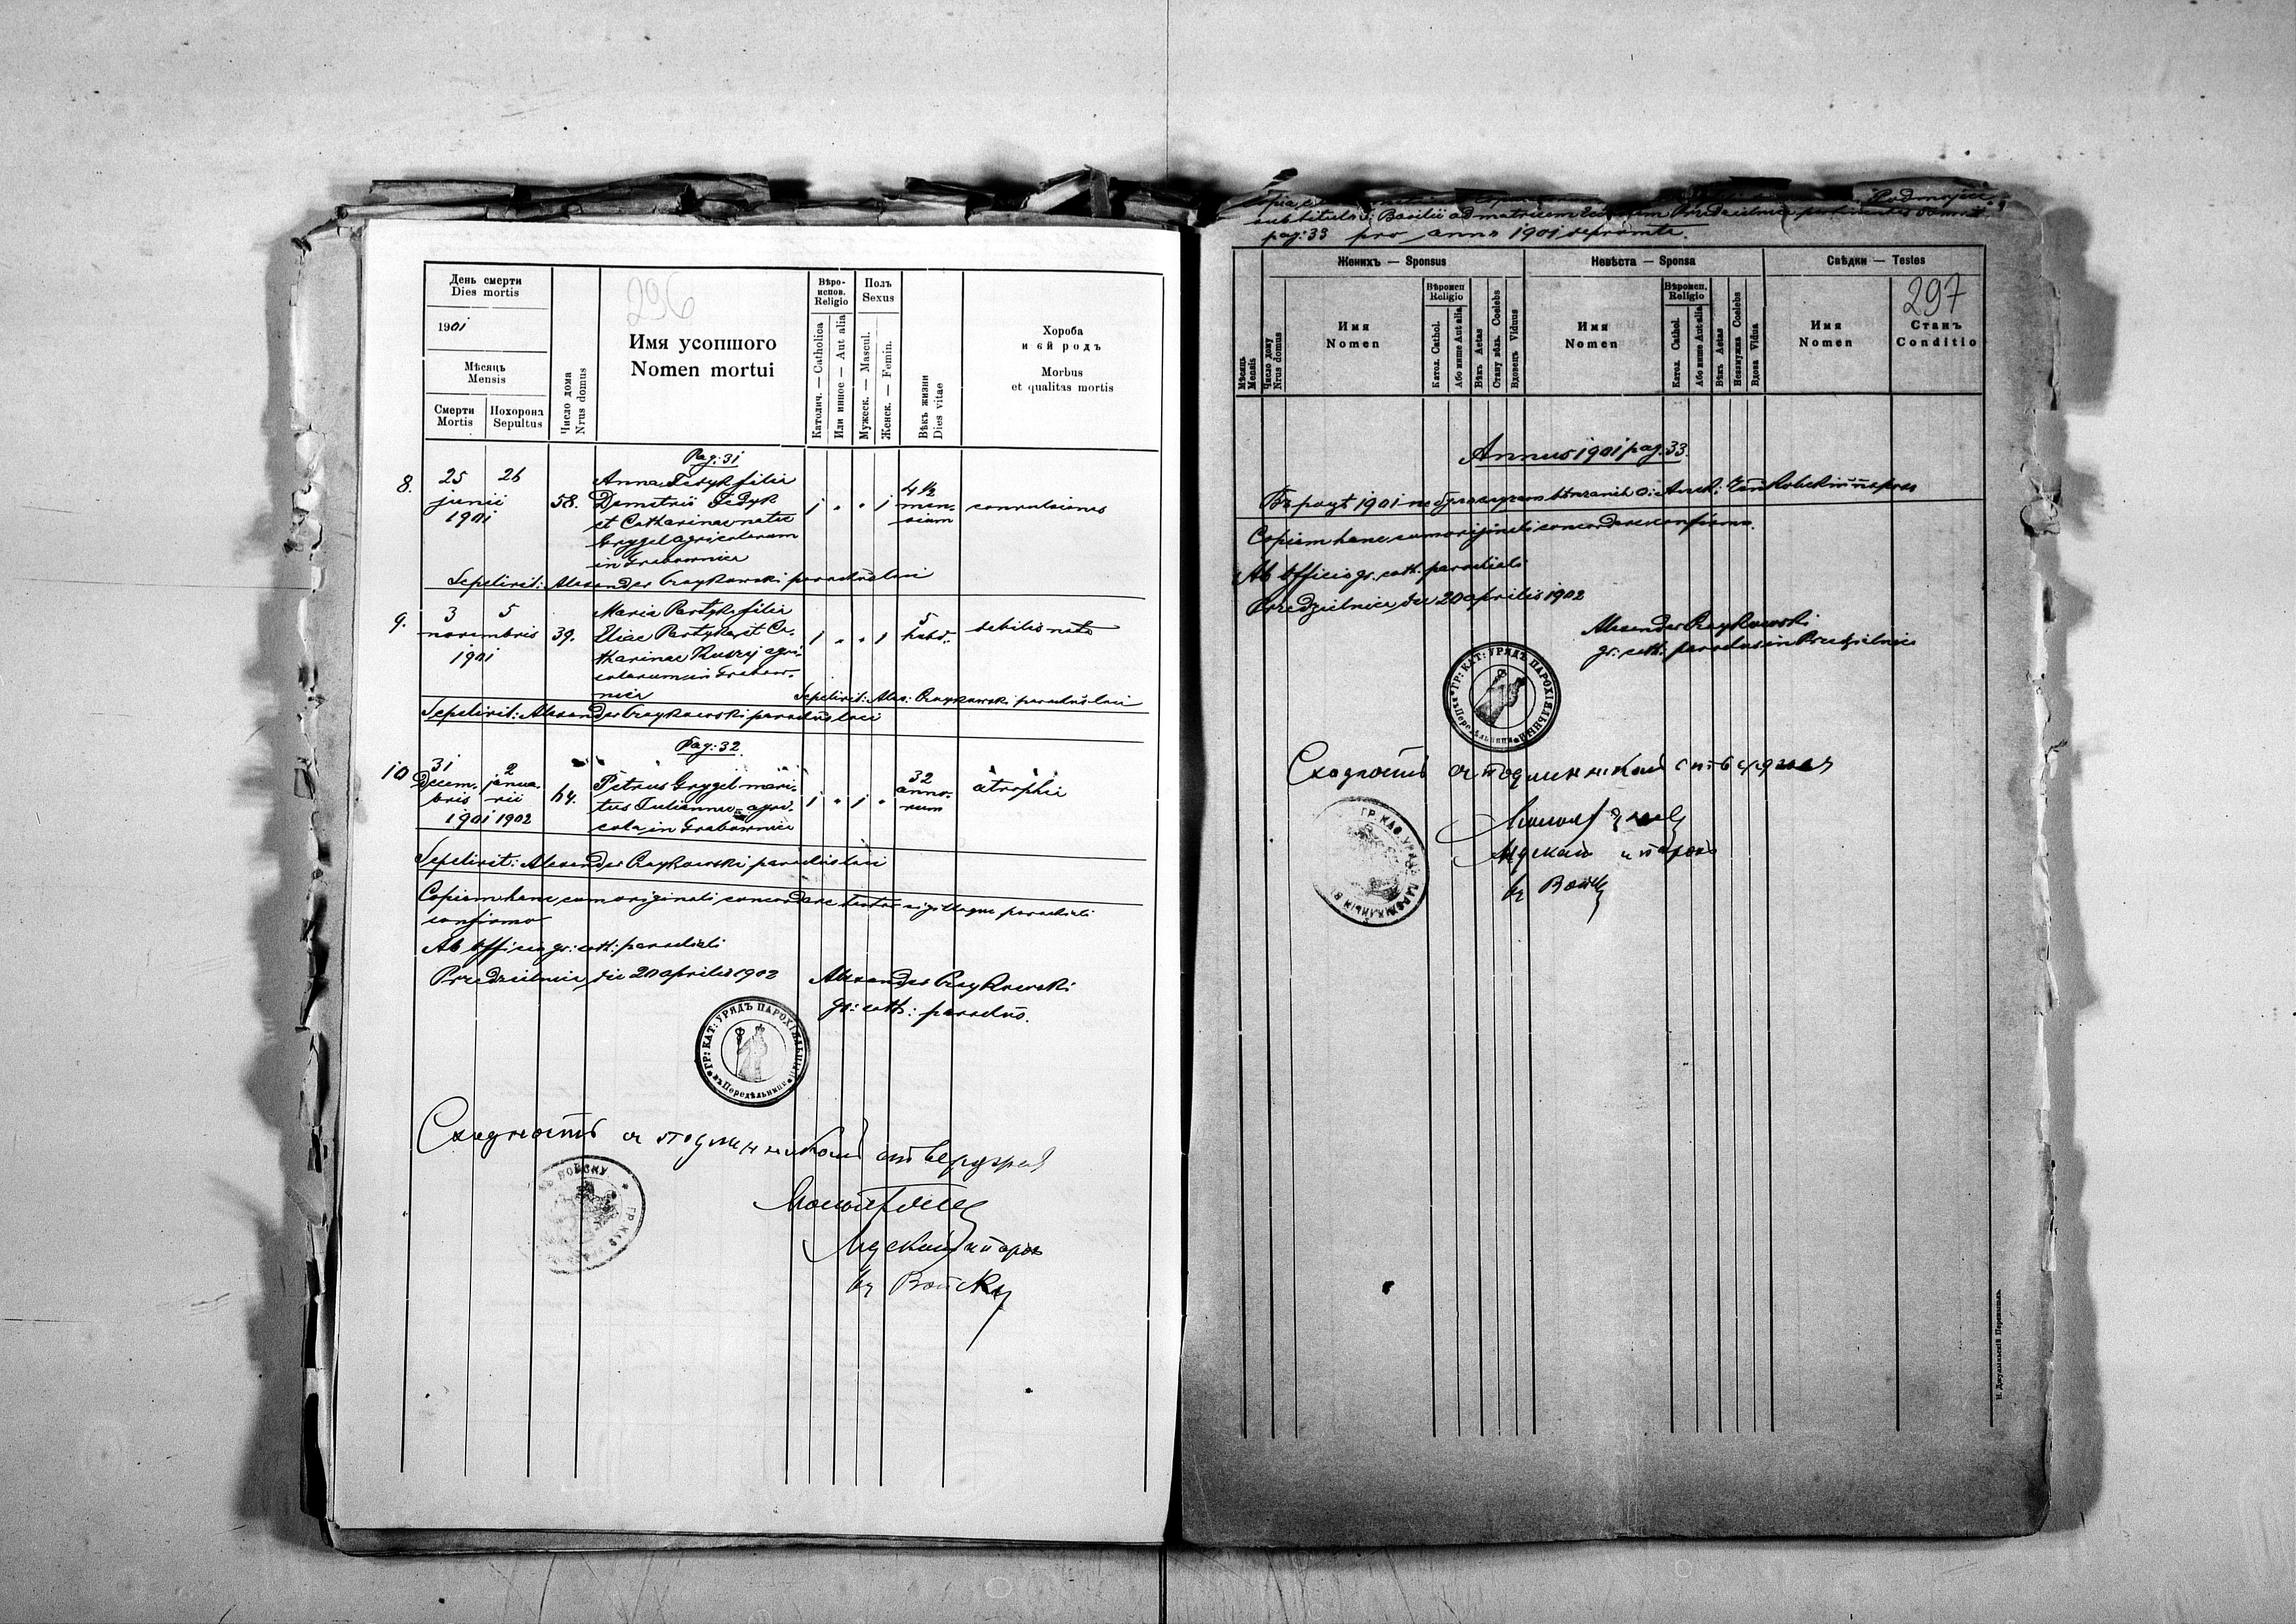 296
День смерти
Dies mortis
1901
Мѣсяць
Mensis
Смерти
Mortis
Похорона
Sepultus
Число дома
Nrus domus
Имя усопшого
Nomen mortui
Вѣро-
испов.
Religio
Католич. — Catholica
Или инное — Aut alia
Полъ
Sexus
Мужеск. — Mascul.
Женск. — Femin.
Вѣкъ жизни
Dies vitae
Хороба
и єй родъ
Morbus
et qualitas mortis
Pag: 31
8. 25 26
junii
1901
58.
Anna Fedyk filia
Demetrii Fedyk
et Catharinae natae
Grygel agricolarum
in Grabownica
1 " " 1
4 1/2
men-
sium
convulsiones
Sepelivit: Alexander Czaykowski parochus loci
9. 3 5
novembris
1901
39.
Maria Partyka filia
Eliae Partyka et Ca-
tharinae Ruszij agri-
colarum in Grabow-
nica
1 " " 1
5
hebd:
debilis nata
Sepelivit: Alex: Czaykowski parochus loci
Sepelivit: Alexander Czaykowski parochus loci
Pag: 32.
10 31 2
Decem- janua-
bris rii
1901 1902
64.
Petrus Grygel mari-
tus Julianna agri-
cola in Grabownica
1 " 1 "
32
anno-
rum
atrophia
Sepelivit: Alexander Czaykowski parochus loci
Copiam hanc cum originali concordare testor sigilloque parochiali
confirmo
Ab officio gr: cath: parochiali
Przedzielnica die 20 aprilis 1902
Alexander Czaykowski
gr: cath: parochus.
ГР: КАТ: УРЯДЪ ПАРОХІЯЛЬНЫЙ
въ Передѣльници
Сходность съ подлинникомъ ствержаю
въ Войску
297
pag: 33 pro anno 1901 depromta.
Мѣсяць
Mensis
Число дому
Nrus domus
Женихъ — Sponsus
Имя
Nomen
Вѣроисп
Religio
Катол. Cathol.
Або инше Aut alia
Вѣкъ Aetas
Стану вѣль. Coelebs
Вдовець Viduus
Невѣста — Sponsa
Имя
Nomen
Вѣроисп.
Religio
Катол. Cathol.
Або инше Aut alia
Вѣкъ Aetas
Незамужна Coelebs
Вдова Vidua
Свѣдки — Testes
Имя
Nomen
Станъ
Conditio
Annus 1901 pag. 33.
Copiam hanc cum originali concordare confirmo.
Ab officio gr. cath. parochiali
Przedzielnica die 20 aprilis 1902
Alexander Czaykowski
gr: cath: parochus in Przedzielnica
ГР: КАТ: УРЯДЪ ПАРОХІЯЛЬНЫЙ
въ Передѣльници
Сходность съ подлинникомъ ствержаю
въ Войску
Н. Джулиньскій Перемышль.